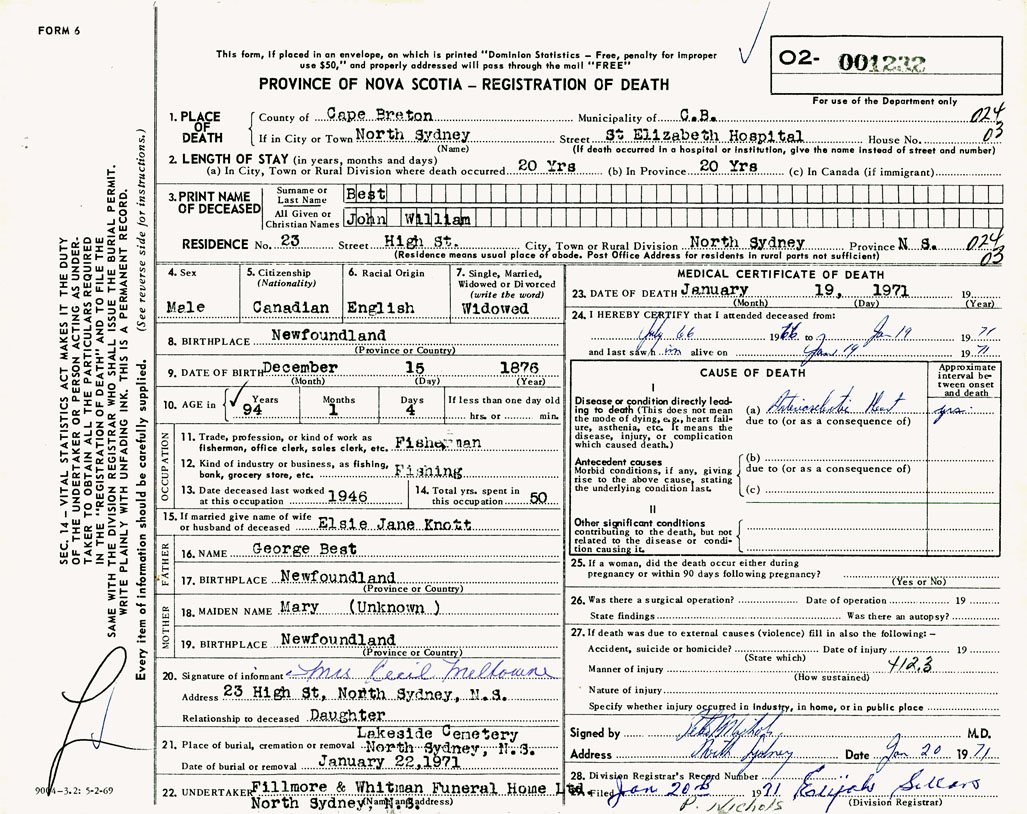 FORM 6
This form, if placed in an envelope, on which is printed "Dominion Statistics — Free, penalty for improper
use $50," and properly addressed will pass through the mail "FREE"
PROVINCE OF NOVA SCOTIA — REGISTRATION OF DEATH
02- 001232
For use of the Department only
1. PLACE OF DEATH
County of Cape Breton Municipality of C.B. 024
If in City or Town North Sydney Street St Elizabeth Hospital House No. 03
(Name) (If death occurred in a hospital or institution, give the name instead of street and number)
2. LENGTH OF STAY (in years, months and days)
(a) In City, Town or Rural Division where death occurred 20 Yrs (b) In Province 20 Yrs (c) In Canada (if immigrant)
3. PRINT NAME OF DECEASED
Surname or Last Name Best
All Given or Christian Names John William
RESIDENCE No. 23 Street High St. City, Town or Rural Division North Sydney Province N. S. 024
(Residence means usual place of abode. Post Office Address for residents in rural parts not sufficient) 03
4. Sex
Male
5. Citizenship
(Nationality)
Canadian
6. Racial Origin
English
7. Single, Married,
Widowed or Divorced
(write the word)
Widowed
8. BIRTHPLACE Newfoundland
(Province or Country)
9. DATE OF BIRTH December 15 1876
(Month) (Day) (Year)
10. AGE in Years Months Days If less than one day old
94 1 4 hrs. or min.
OCCUPATION
11. Trade, profession, or kind of work as
fisherman, office clerk, sales clerk, etc. Fisherman
12. Kind of industry or business, as fishing,
bank, grocery store, etc. Fishing
13. Date deceased last worked
at this occupation 1946
14. Total yrs. spent in
this occupation 50
15. If married give name of wife
or husband of deceased Elsie Jane Knott
FATHER
16. NAME George Best
17. BIRTHPLACE Newfoundland
(Province or Country)
MOTHER
18. MAIDEN NAME Mary (Unknown )
19. BIRTHPLACE Newfoundland
(Province or Country)
20. Signature of informant Mrs Cecil Melbourne
Address 23 High St, North Sydney, N.S.
Relationship to deceased Daughter
Lakeside Cemetery
21. Place of burial, cremation or removal North Sydney, N.S.
Date of burial or removal January 22,1971
22. UNDERTAKER Fillmore & Whitman Funeral Home Ltd.
North Sydney, N.S.
(Name and address)
MEDICAL CERTIFICATE OF DEATH
23. DATE OF DEATH January 19, 1971 19
(Month) (Day) (Year)
24. I HEREBY CERTIFY that I attended deceased from:
July 66 1966 to Jan 19 1971
and last saw him alive on Jan 19 1971
CAUSE OF DEATH
Approximate
interval be-
tween onset
and death
I
Disease or condition directly lead-
ing to death (This does not
mean the mode of dying, e.g., heart fail-
ure, asthenia, etc. It means the
disease, injury, or complication
which caused death.)
(a) Heart yrs.
due to (or as a consequence of)
Antecedent causes
Morbid conditions, if any, giving
rise to the above cause, stating
the underlying condition last.
(b)
due to (or as a consequence of)
(c)
II
Other significant conditions
contributing to the death, but not
related to the disease or condi-
tion causing it.
25. If a woman, did the death occur either during
pregnancy or within 90 days following pregnancy?
(Yes or No)
26. Was there a surgical operation? Date of operation 19
State findings Was there an autopsy?
27. If death was due to external causes (violence) fill in also the following: —
Accident, suicide or homicide? Date of injury 19
(State which)
Manner of injury 412.3
(How sustained)
Nature of injury
Specify whether injury occurred in Industry, in home, or in public place
Signed by M.D.
Address North Sydney Date Jan 20 1971
28. Division Registrar's Record Number
Filed Jan 20th 1971 Elijah Sellars
P. Nichols (Division Registrar)
SEC. 14 — VITAL STATISTICS ACT MAKES IT THE DUTY
OF THE UNDERTAKER OR PERSON ACTING AS UNDER-
TAKER TO OBTAIN ALL THE PARTICULARS REQUIRED
IN THE "REGISTRATION OF DEATH" AND TO FILE THE
SAME WITH THE DIVISION REGISTRAR WHO SHALL ISSUE THE BURIAL PERMIT.
WRITE PLAINLY WITH UNFADING INK. THIS IS A PERMANENT RECORD.
Every item of information should be carefully supplied. (See reverse side for instructions.)
9004-3.2: 5-2-69